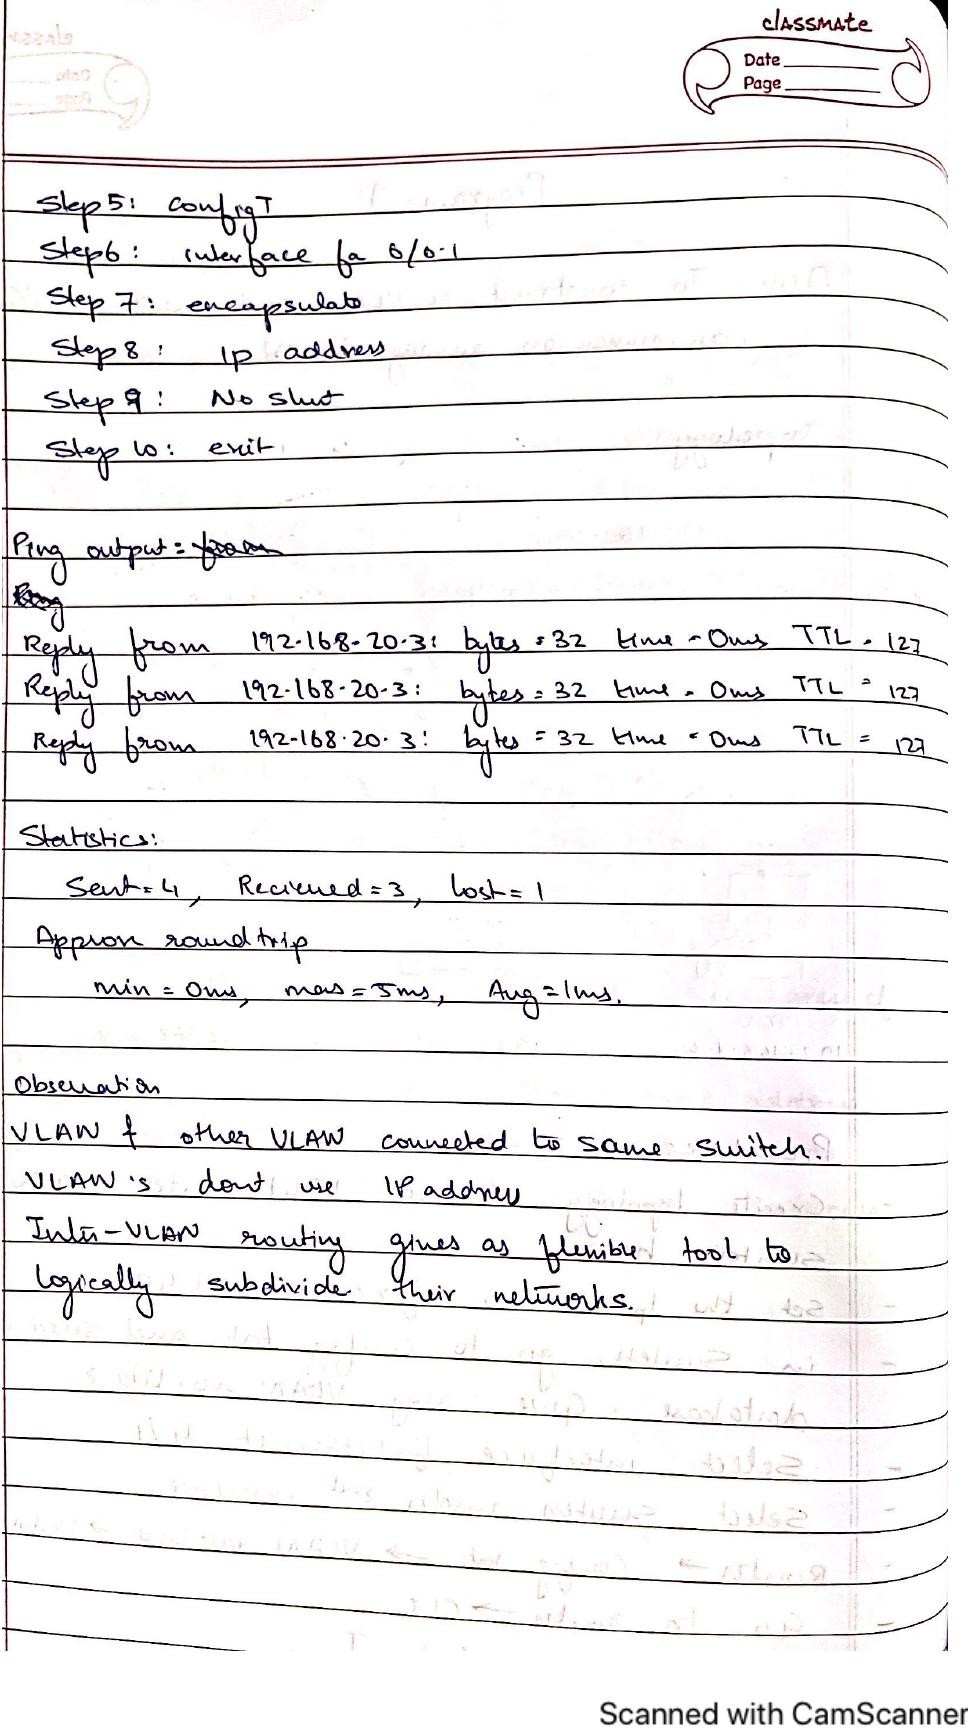 classmate
Date
Page
Step 5: config T
Step 6: interface fa 0/0.1
Step 7: encapsulate
Step 8: IP address
Step 9: No shut
Step 10: exit
Ping output =
Reply from 192.168.20.3: bytes = 32 time = 0ms TTL = 127
Reply from 192.168.20.3: bytes = 32 time = 0ms TTL = 127
Reply from 192.168.20.3: bytes = 32 time = 0ms TTL = 127
Statistics:
Sent = 4, Recieved = 3, lost = 1
Approx round trip
min = 0ms, max = 5ms, Avg = 1ms.
Observation
VLAN & other VLAN connected to same switch.
VLAN's dont use IP address
Inter-VLAN routing gives as flexible tool to
logically subdivide their networks.
Scanned with CamScanner